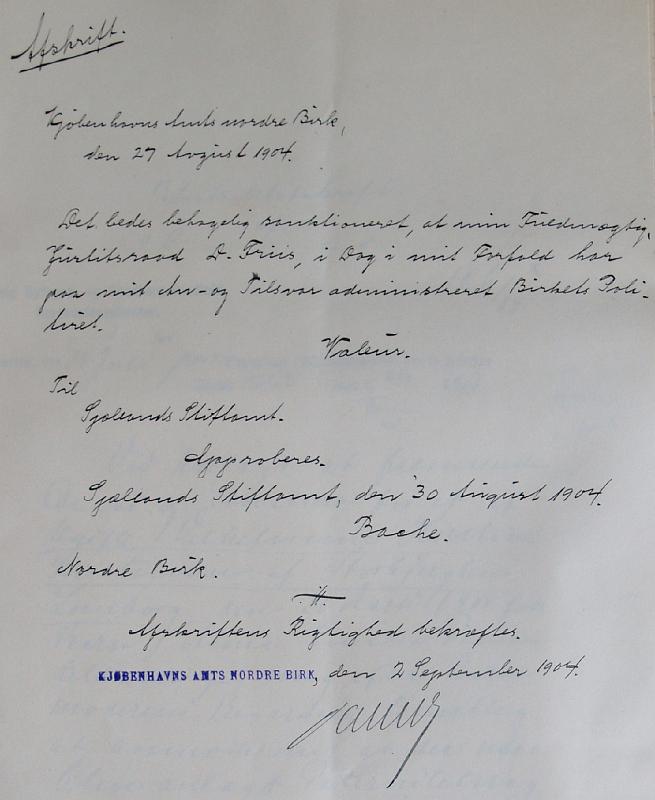 Afskrift.
Kjøbenhavns Amts nordre Birk,
den 27 August 1904.
Det bedes behagelig sanktioneret, at min Fuldmægtig,
Jürlitsraad D. Friis, i Dag i mit Forfald har
paa mit An- og Tilsvar administreret Birkets Poli-
tiret.
Valeur.
Til
Sjællands Stiftamt.
Approberes.
Sjællands Stiftamt, den 30 August 1904.
Bache.
Nordre Birk.
Afskriftens Rigtighed bekræftes.
KJØBENHAVNS AMTS NORDRE BIRK, den 2 September 1904.